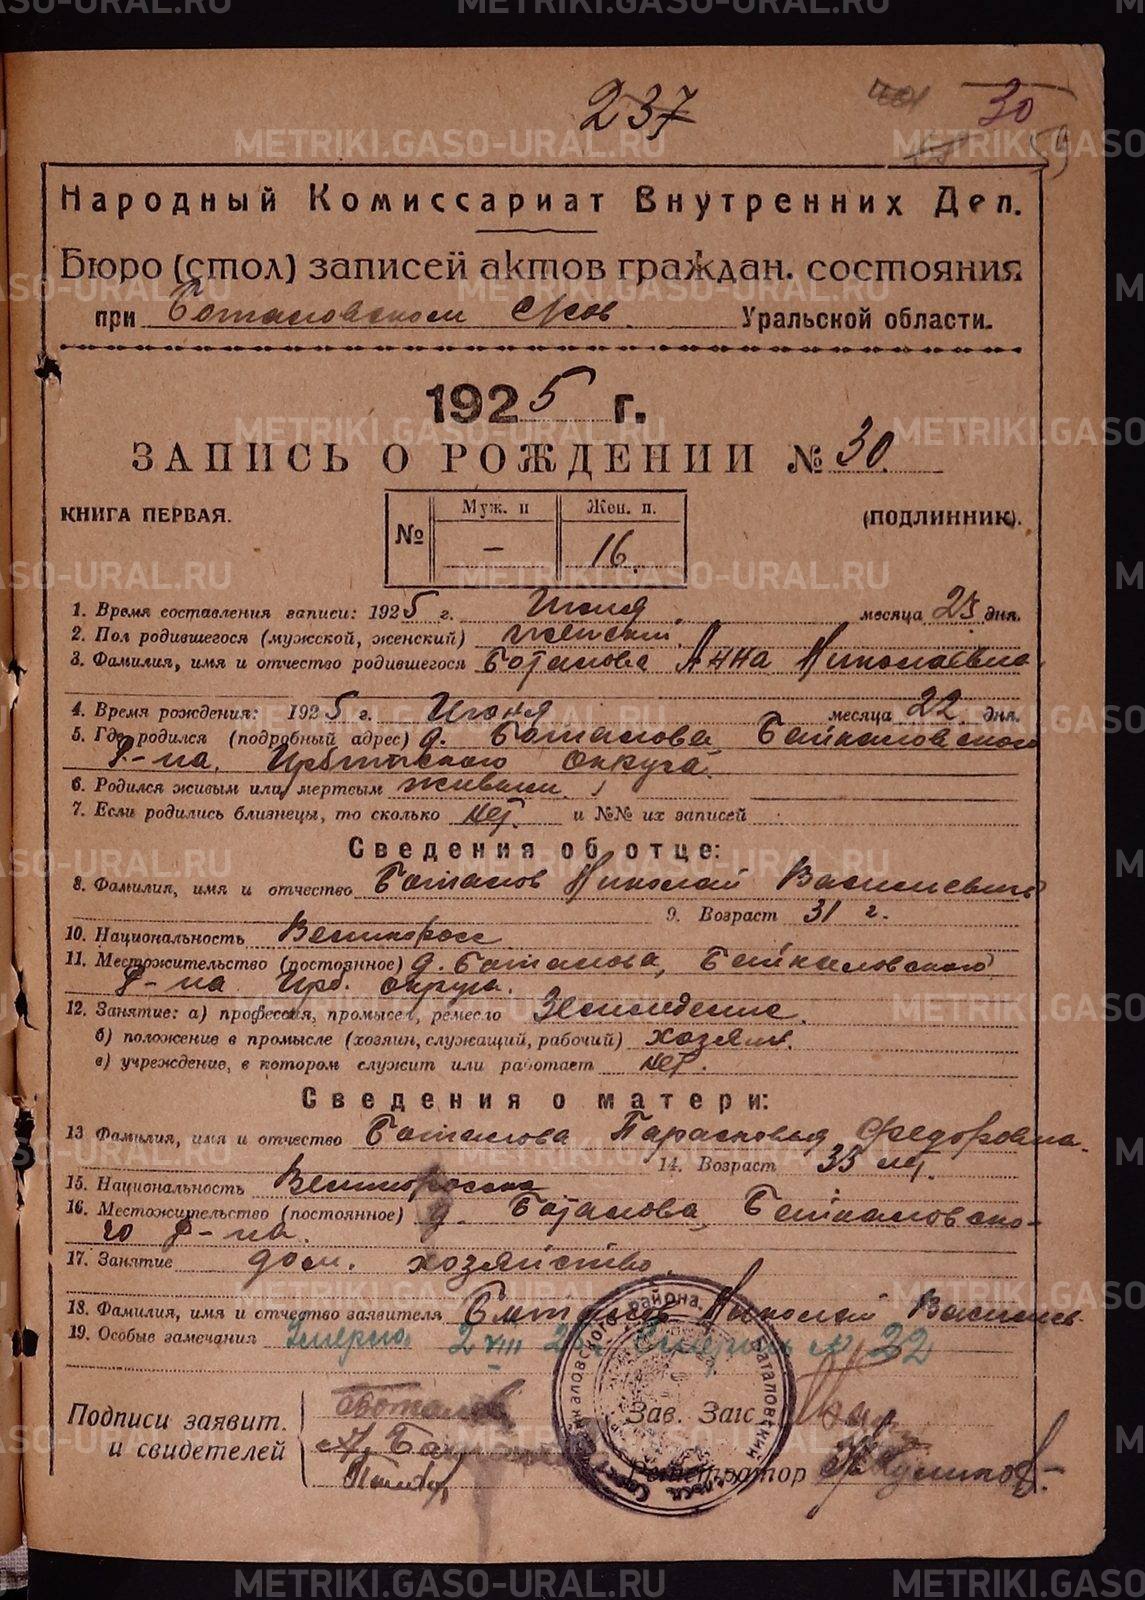 237 30
Народный Комиссариат Внутренних Дел.
Бюро (стол) записей актов граждан. состояния
при Боталовском Уральской области.
1925 г.
ЗАПИСЬ О РОЖДЕНИИ № 30.
КНИГА ПЕРВАЯ. (ПОДЛИННИК).
№ Муж. п Жен. п.
— 16.
1. Время составления записи: 1925 г. месяца 25 дня.
2. Пол родившегося (мужской, женский) женский
3. Фамилия, имя и отчество родившегося Боталова Анна Николаевна
4. Время рождения: 1925 г. Июня месяца 22 дня.
5. Где родился (подробный адрес) д. Боталова Байкаловского
Р-на. Ирбитского Округа.
6. Родился живым или мертвым живым.
7. Если родились близнецы, то сколько нет. и №№ их записей
Сведения об отце:
8. Фамилия, имя и отчество Боталов Николай Васильевич
9. Возраст 31 г.
10. Национальность Великоросс
11. Местожительство (постоянное) д. Боталова, Байкаловского
Р-на Ирб. округа.
12. Занятие: а) профессия, промысел, ремесло Земледелие.
б) положение в промысле (хозяин, служащий, рабочий) хозяин.
в) учреждение, в котором служит или работает нет.
Сведения о матери:
13 Фамилия, имя и отчество Боталова Парасковья Федоровна.
14. Возраст 35 лет.
15. Национальность Великоросска
16. Местожительство (постоянное) д. Боталова Байкаловско-
го Р-на.
17. Занятие дом. хозяйство.
18. Фамилия, имя и отчество заявителя Боталов Николай Васильев.
19. Особые замечания Умерла 2 VIII 25 Смерть № 32
Подписи заявит.
и свидетелей
Боталов
Зав. Загс
Регистратор Куликов
METRIKI.GASO-URAL.RU